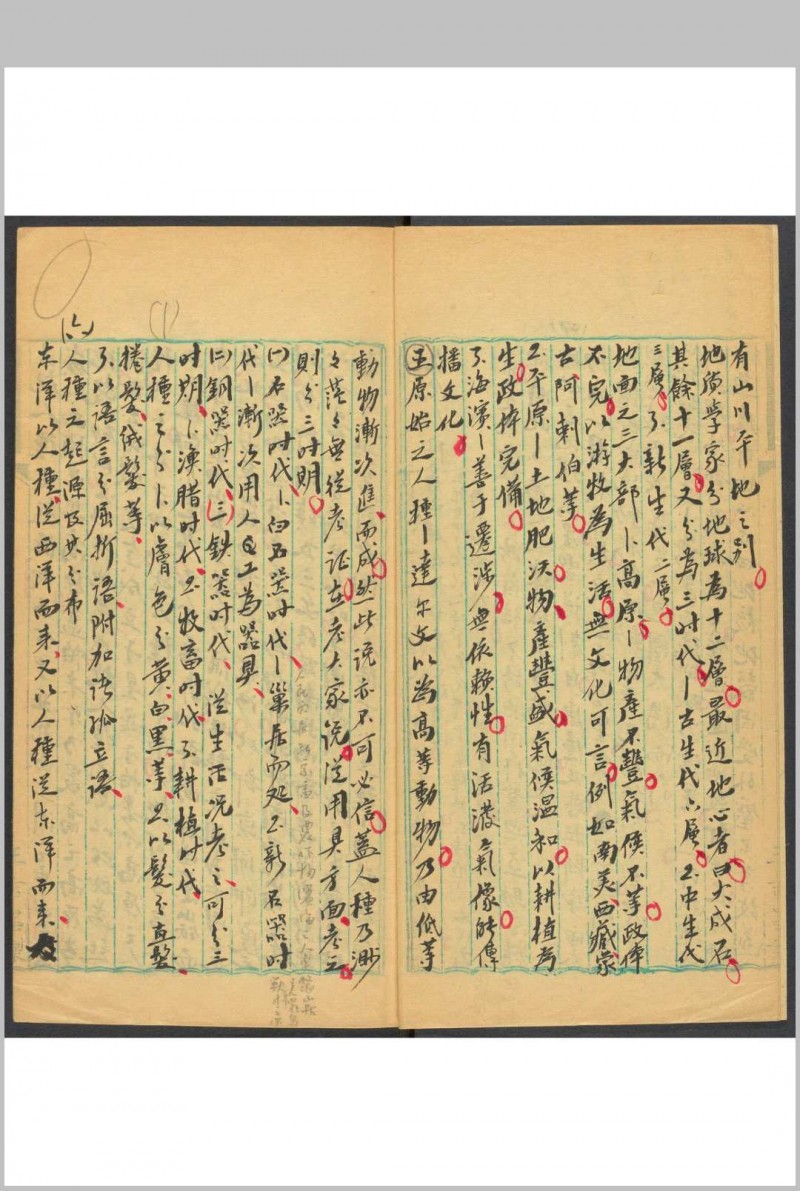 有山川平地之别
地質學家分地球為十二層最近地心者曰大成石
其餘十一層又分為三时代丨古生代六層〢中生代
三層〣新生代二層
地面之三大部〡高原丨物產不豐氣候不等政体
不完以游牧為生活無文化可言例如南美西藏蒙
古阿剌伯等
〢平原丨土地肥沃物產豐盛氣候温和以耕植為
生政体完備
〣海濱丨善于遷涉無依賴性有活潑氣像能傳
播文化
五原始之人種丨達尔文以為高等動物乃由低等
動物漸次進而成然此說亦不可必信蓋人種乃渺
々茫々無從考证在考古家說從用具方面考之
則分三时期
(一)石器时代〡旧石器时代丨巢居而处〢新石器时
代丨漸次用人工為器具
(二)銅器时代(三)鉄器时代從生活况考之可分三
时期〡漁腊时代〢牧畜时代〣耕植时代
人種之分〡以膚色分黄白黑等〢以髮分直髮
捲髮绒髮等
〣以語言分屈折語附加語孤立語
(六)人種之起源及其分布
东洋以人種從西洋而来又以人種從东洋而来